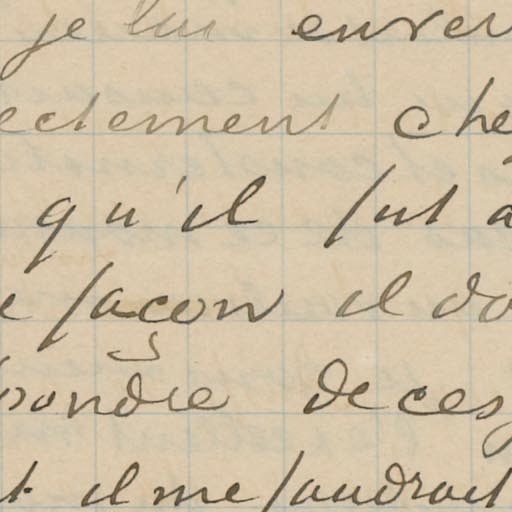 je lui enver
ectement che
qu'il fut a
e façon il do
pondre de ces
t il me faudrait